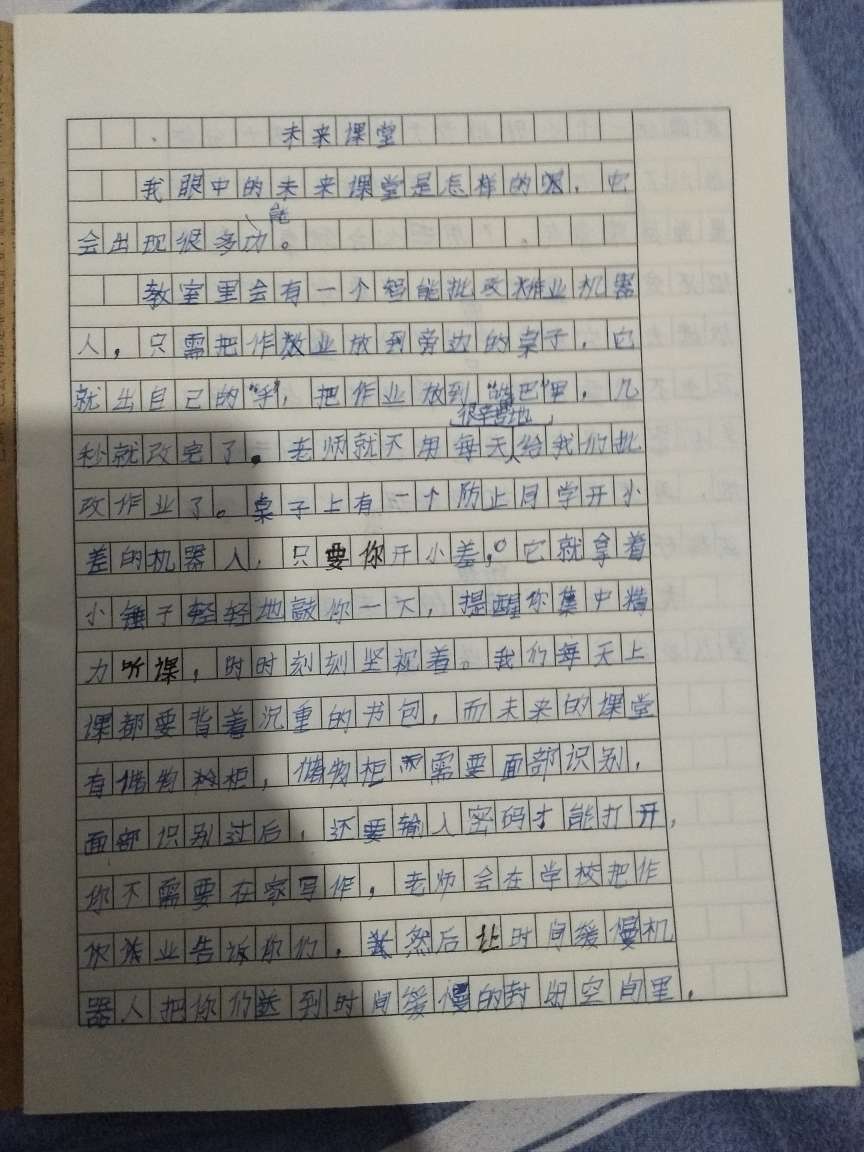 未来课堂
我眼中的未来课堂是怎样的呢，它
会出现很多功能。
教室里会有一个智能批改作业机器
人，只需把作业放到旁边的桌子，它
就出自己的“手”，把作业放到“嘴巴”里，几
秒就改完了。老师就不用每天很辛苦地给我们批
改作业了。桌子上有一个防止同学开小
差的机器人，只要你开小差，它就拿着
小锤子轻轻地敲你一下，提醒你集中精
力听课，时时刻刻坚视着。我们每天上
课都要背着沉重的书包，而未来的课堂
有储物柜，储物柜需要面部识别，
面部识别过后，还要输入密码才能打开，
你不需要在家写作，老师会在学校把作
业告诉你们，然后让时间缓慢机
器人把你们送到时间缓慢的封闭空间里，